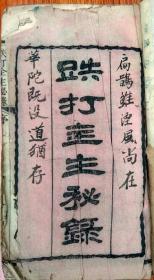 扁鵲雖湮風尚在
跌打全生秘錄
華陀既没道猶存